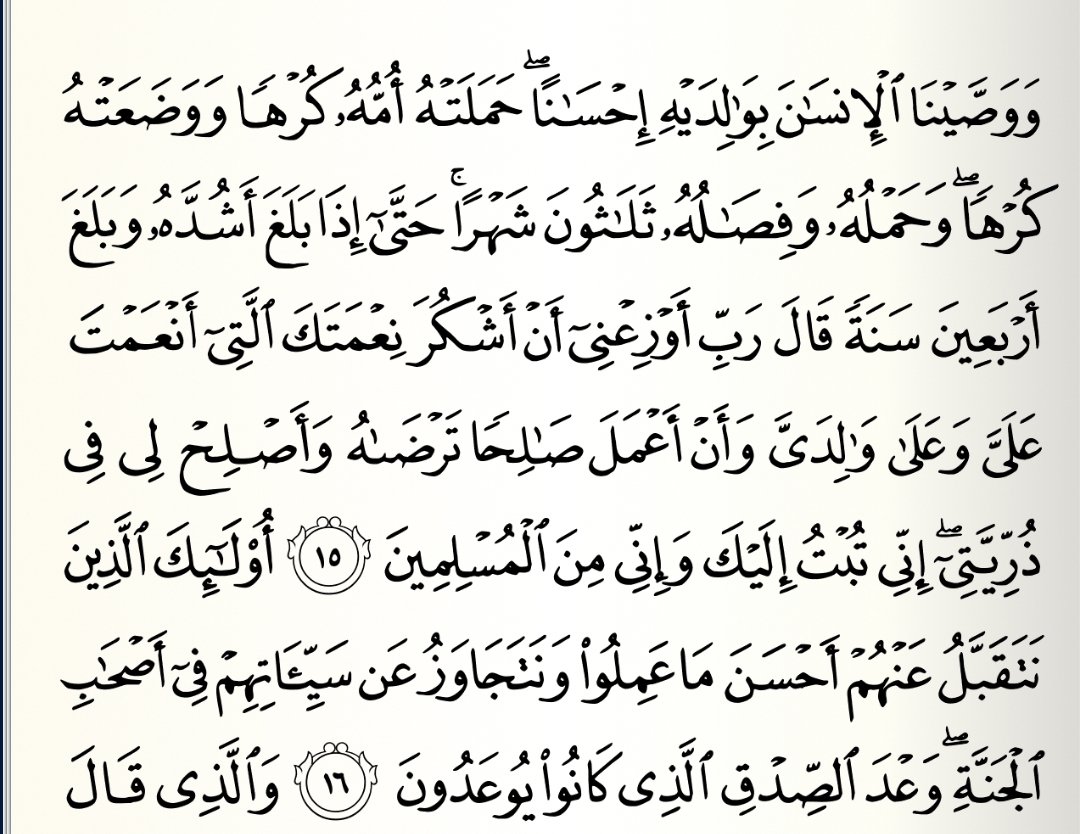 وَوَصَّيۡنَا ٱلۡإِنسَٰنَ بِوَٰلِدَيۡهِ إِحۡسَٰنًاۖ حَمَلَتۡهُ أُمُّهُۥ كُرۡهٗا وَوَضَعَتۡهُ
كُرۡهٗاۖ وَحَمۡلُهُۥ وَفِصَٰلُهُۥ ثَلَٰثُونَ شَهۡرًاۚ حَتَّىٰٓ إِذَا بَلَغَ أَشُدَّهُۥ وَبَلَغَ
أَرۡبَعِينَ سَنَةٗ قَالَ رَبِّ أَوۡزِعۡنِيٓ أَنۡ أَشۡكُرَ نِعۡمَتَكَ ٱلَّتِيٓ أَنۡعَمۡتَ
عَلَيَّ وَعَلَىٰ وَٰلِدَيَّ وَأَنۡ أَعۡمَلَ صَٰلِحٗا تَرۡضَىٰهُ وَأَصۡلِحۡ لِي فِي
ذُرِّيَّتِيٓۖ إِنِّي تُبۡتُ إِلَيۡكَ وَإِنِّي مِنَ ٱلۡمُسۡلِمِينَ ١٥ أُوْلَٰٓئِكَ ٱلَّذِينَ
نَتَقَبَّلُ عَنۡهُمۡ أَحۡسَنَ مَا عَمِلُواْ وَنَتَجَاوَزُ عَن سَيِّـَٔاتِهِمۡ فِيٓ أَصۡحَٰبِ
ٱلۡجَنَّةِۖ وَعۡدَ ٱلصِّدۡقِ ٱلَّذِي كَانُواْ يُوعَدُونَ ١٦ وَٱلَّذِي قَالَ